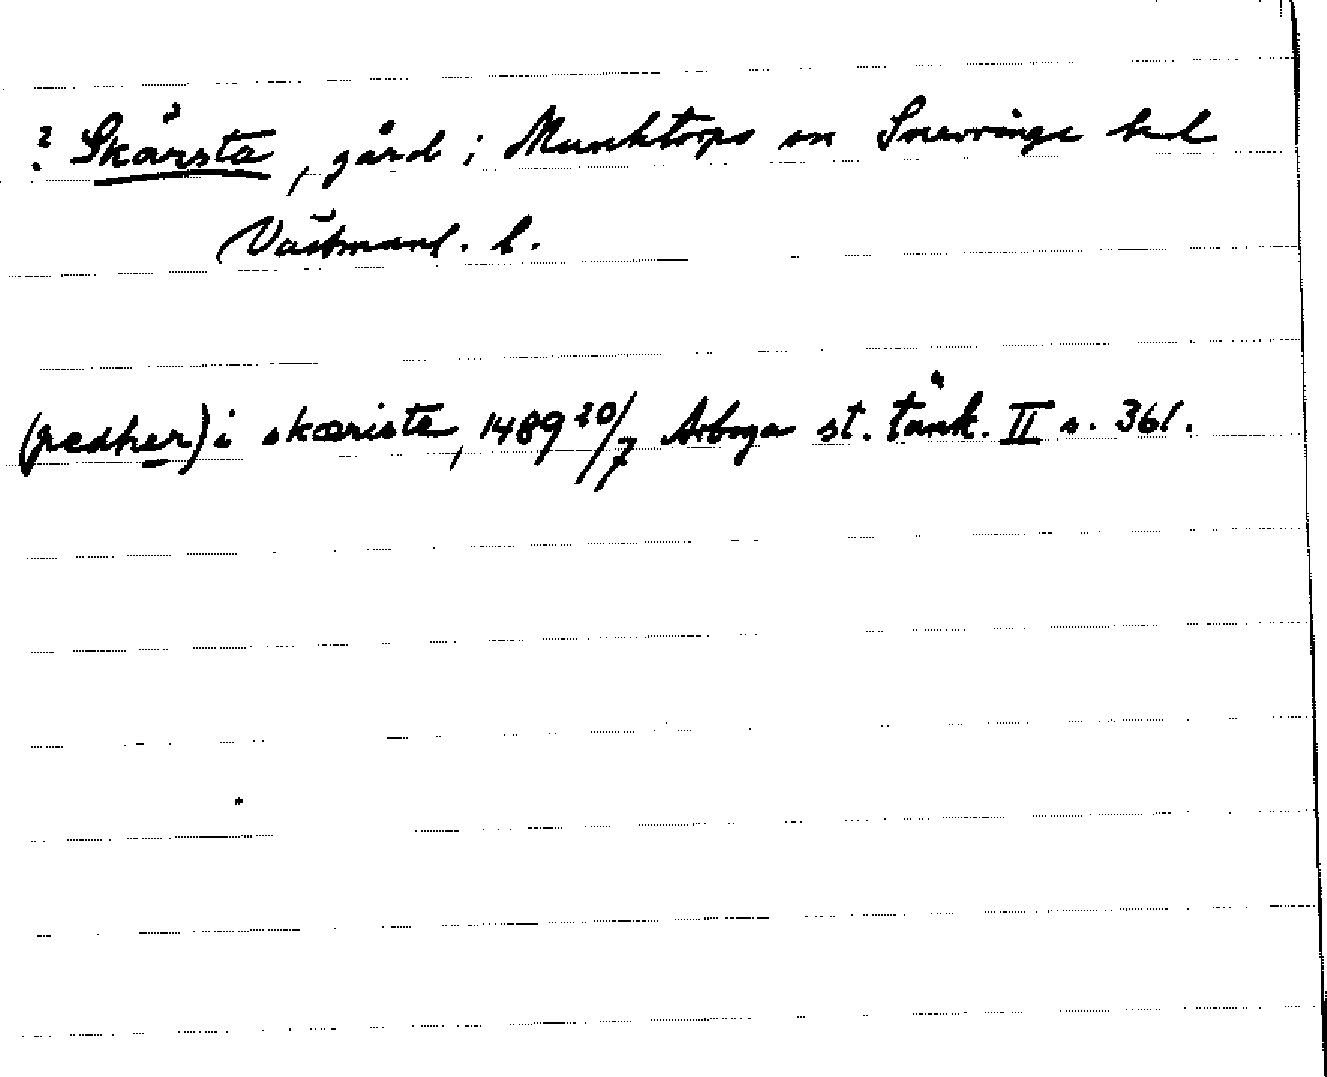 ? Skärsta, gård i Munktorps sn Snevringe hd
Västmanl. l.
(pedher) i skæriste, 1489 20/7 Arboga st. tänk. II s. 361.